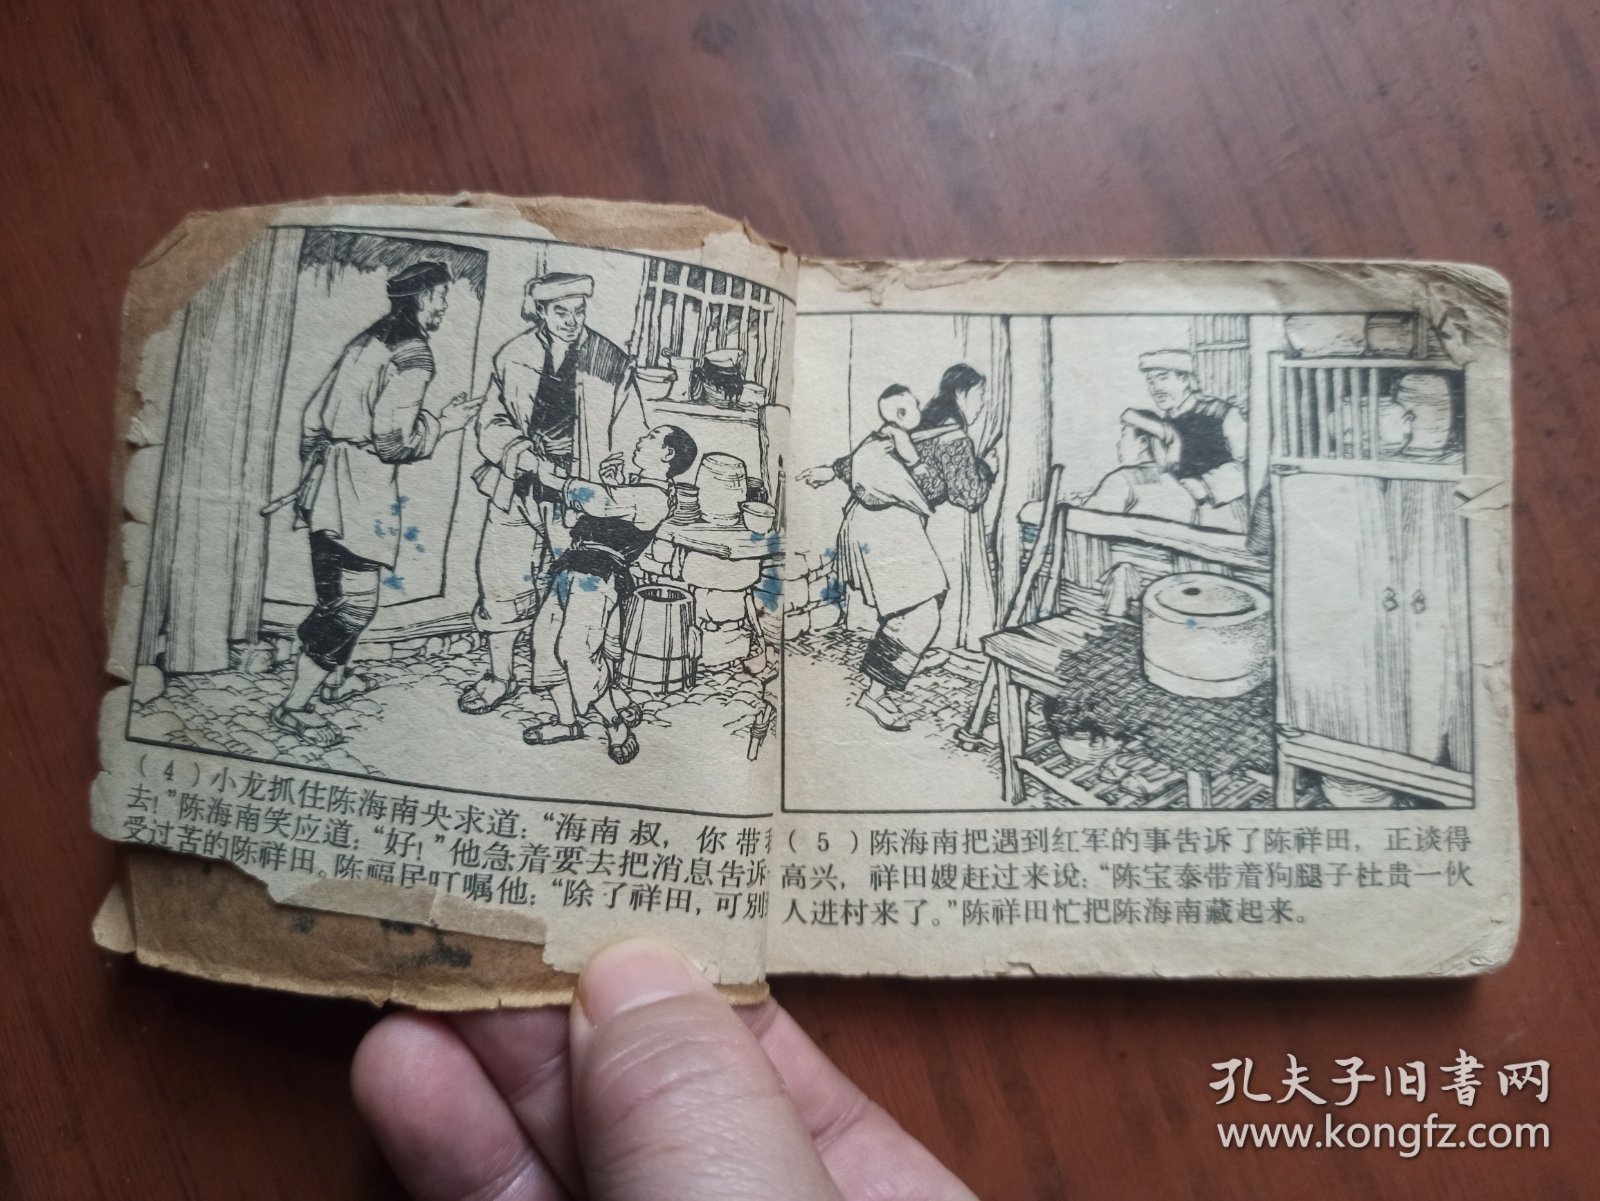 (4)小龙抓住陈海南央求道：“海南叔，你带我
去！”陈海南笑应道：“好！”他急着要去把消息告诉
受过苦的陈祥田。陈福民叮嘱他：“除了祥田，可别
(5)陈海南把遇到红军的事告诉了陈祥田，正谈得
高兴，祥田嫂赶过来说：“陈宝泰带着狗腿子杜贵一伙
人进村来了。”陈祥田忙把陈海南藏起来。
孔夫子旧书网
www.kongfz.com